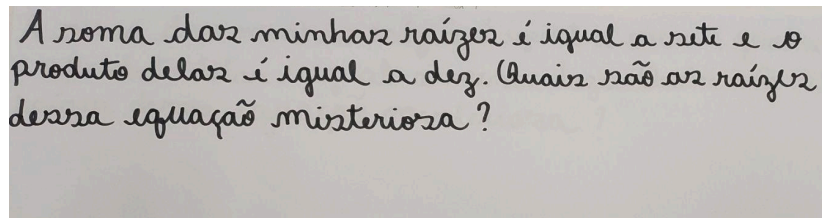 A soma das minhas raízes é igual a sete e o
produto delas é igual a dez. Quais são as raízes
dessa equação misteriosa?